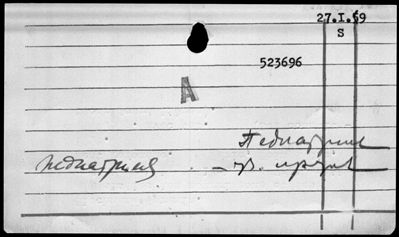 27.I.59
S
523696
A
Педиатрия
педиатрия –